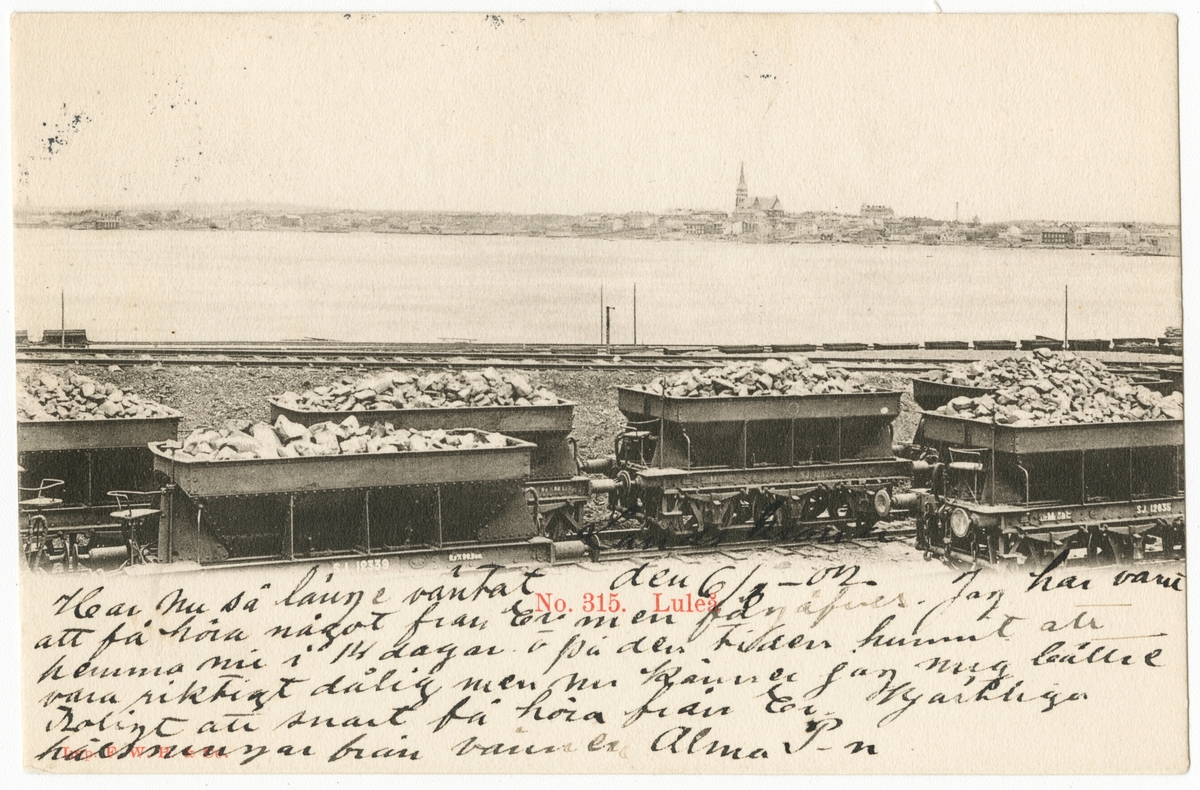 S.J. 12339
S.J. 12835
den 6/8 -02.
No. 315. Luleå
Har nu så länge väntat
att få höra något från Er men förgäfves. Jag har varit
hemma nu i 14 dagar o på den tiden hunnit att
vara riktigt dålig men nu känner jag mig bättre
Roligt att snart få höra från Er. Hjärtliga
hälsningar från vännen Alma P-n